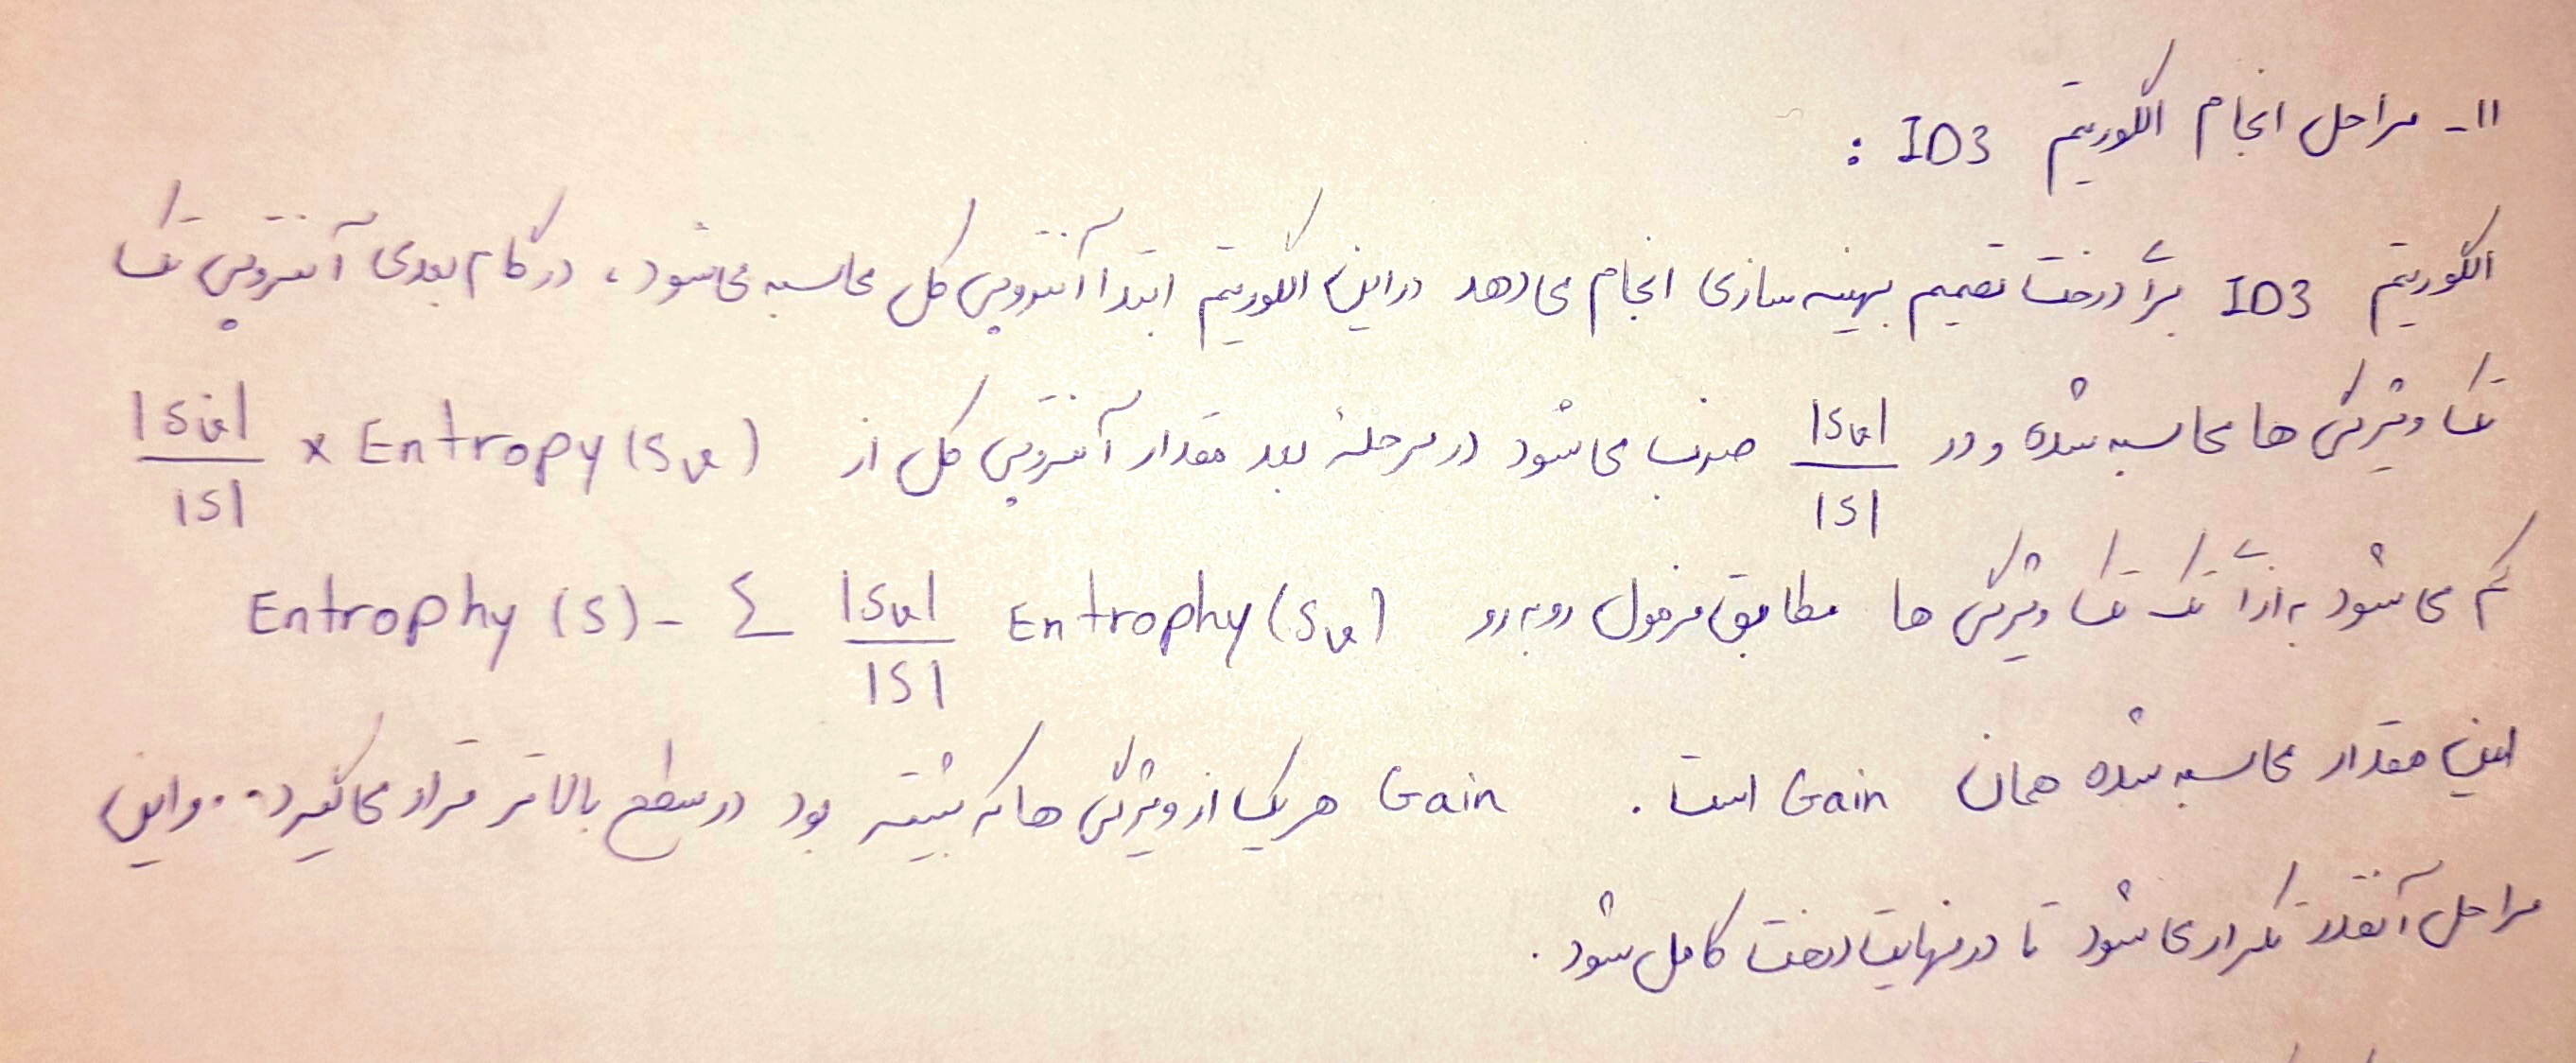 ۱۱- مراحل انجام الگوریتم ID3 :
الگوریتم ID3 برای درخت تصمیم بهینه سازی انجام می دهد در این الگوریتم ابتدا آنتروپی کل محاسبه می شود ، در گام بعدی آنتروپی تک
تک ویژگی ها محاسبه شده و در |Sv| / |S| ضرب می شود در مرحلهٔ بعد مقدار آنتروپی کل از |Sv| / |S| × Entropy (Sv)
کم می شود به ازای تک تک ویژگی ها مطابق فرمول رو به رو Entrophy (S) - Σ |Sv| / |S| Entrophy (Sv)
این مقدار محاسبه شده همان Gain است . Gain هر یک از ویژگی ها که بیشتر بود در سطح بالاتر قرار می گیرد . . و این
مراحل آنقدر تکرار می شود تا در نهایت درخت کامل شود .